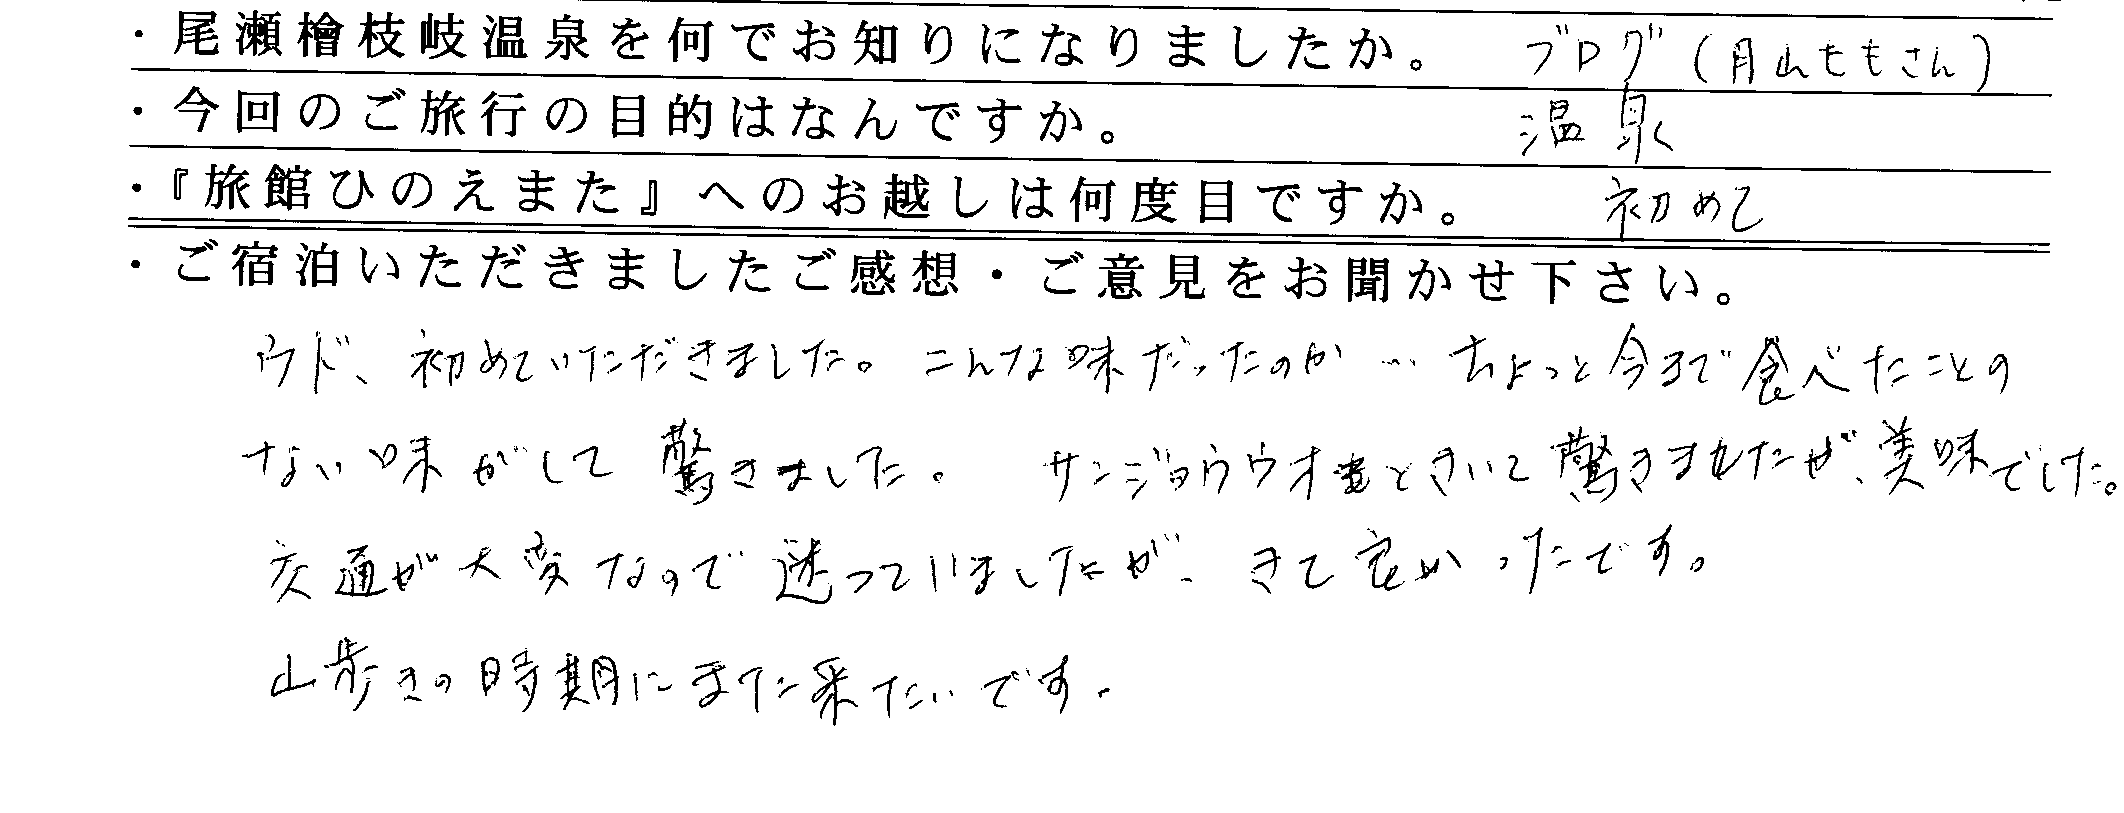 ・尾瀬檜枝岐温泉を何でお知りになりましたか。 ブログ(月山ももさん)
・今回のご旅行の目的はなんですか。 温泉
・『旅館ひのえまた』へのお越しは何度目ですか。 初めて
・ご宿泊いただきましたご感想・ご意見をお聞かせ下さい。
ウド、初めていただきました。こんな味だったのか…ちょっと今まで食べたことの
ない味がして驚きました。 サンショウウオときいて驚きましたが、美味でした。
交通が大変なので迷っていましたが、きて良かったです。
山歩きの時期にまた来たいです。